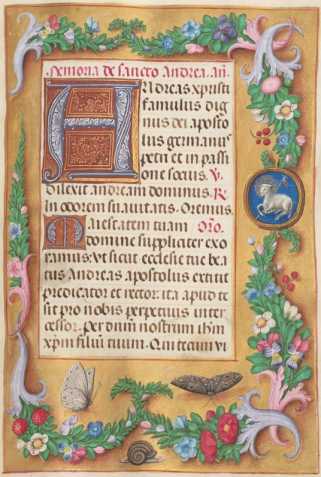 Memoria de sancto Andrea. añ.
Andreas xpristi
famulus dig
nus dei aposto
lus germanus
petri et in passi
one socius. V.
Dilexit andream dominus. R.
In odorem suavitatis. Oremus.
Maiestatem tuam Oro.
domine suppliciter exo
ramus: vt sicut ecclesie tue be a
tus Andreas apostolus extitit
predicator et rector: ita apud te
sit pro nobis perpetuus inter
cessor. Per dñm nostrum ihm
xpm filium tuum. Qui tecum vi